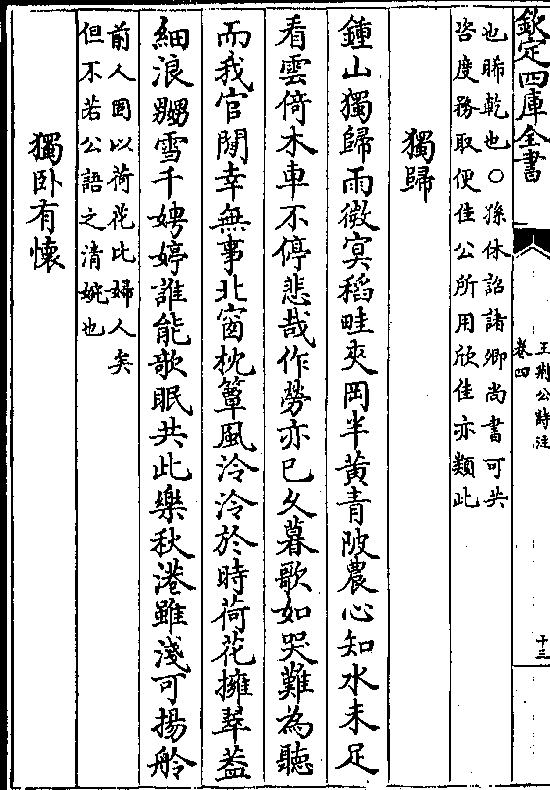 欽定四庫全書
王荊公詩注
卷四
十三
也晞乾也○孫休詔諸卿尚書可共
咨度務取便佳公所用欣佳亦類此
獨歸
鍾山獨歸雨微㝠稻畦夾岡半黃青陂農心知水未足
看雲倚木車不停悲哉作勞亦已久暮歌如哭難為聽
而我官閒幸無事北窗枕簟風泠泠於時荷花擁翠葢
細浪嬲雪千娉婷誰能歌眠共此樂秋港雖淺可揚舲
前人固以荷花比婦人矣
但不若公語之清婉也
獨卧有懷